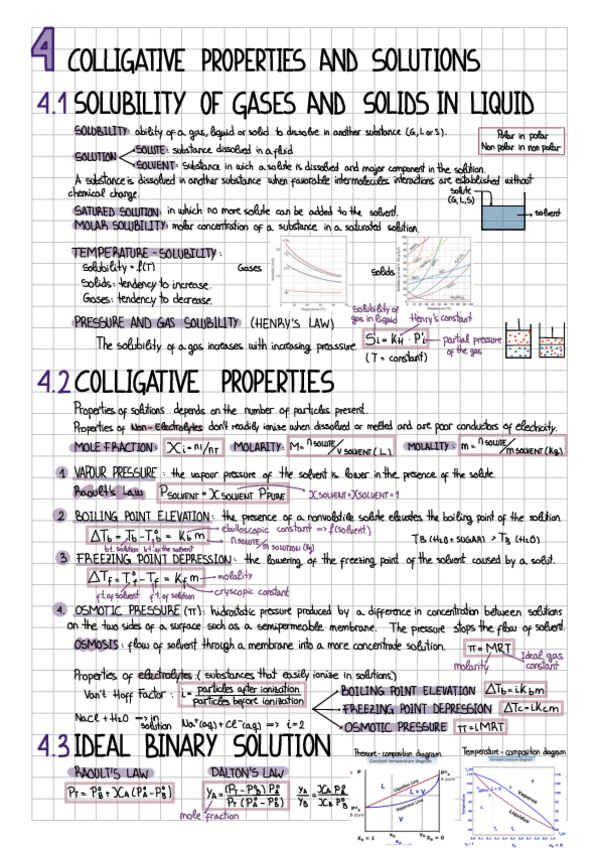 4 COLLIGATIVE PROPERTIES AND SOLUTIONS
4.1 SOLUBILITY OF GASES AND SOLIDS IN LIQUID
SOLUBILITY: ability of a gas, liquid or solid to dissolve in another substance (G, L or S).
Polar in polar
Non polar in non polar
SOLUTION
SOLUTE: substance dissolved in a fluid
SOLVENT: Substance in wich a solute is dissolved and major component in the solution.
A substance is dissolved in another substance when favorable intermolecules interactions are established without
chemical change.
solute
(G, L, S)
solvent
SATURED SOLUTION: in which no more solute can be added to the solvent.
MOLAR SOLUBILITY: molar concentration of a substance in a saturated solution.
TEMPERATURE - SOLUBILITY:
Solubility = f(T)
Solids: tendency to increase.
Gases: tendency to decrease.
Gases
Solids
PRESSURE AND GAS SOLUBILITY (HENRY'S LAW)
The solubility of a gas increases with increasing preassure.
Solubility of
gas in liquid
Henry's constant
Si = KH · Pi
partial pressure
of the gas
(T = constant)
4.2 COLLIGATIVE PROPERTIES
Properties of solutions depends on the number of particles present.
Properties of Non-Electrolytes don't readily ionize when dissolved or melted and are poor conductors of electricity.
MOLE FRACTION: Xi = ni/nT MOLARITY: M = n SOLUTE/V SOLVENT (L) MOLALITY: m = n SOLUTE/m SOLVENT (Kg)
1 VAPOUR PRESSURE: the vapour pressure of the solvent is lower in the presence of the solute.
Raoult's Law PSOLVENT = XSOLVENT P°PURE XSOLVENT + XSOLVENT = 1
2 BOILING POINT ELEVATION: the presence of a nonvolatile solute elevates the boiling point of the solution.
ΔTb = Tb - Tb° = Kb m
ebulloscopic constant => f(solvent)
n SOLUTE/m SOLUTION (Kg)
b.t. solution b.t. of the solvent
TB (H2O + SUGAR) > TB (H2O)
3 FREEZING POINT DEPRESSION: the lowering of the freezing point of the solvent caused by a solit.
ΔTf = Tf° - Tf = Kf m
molality
cryscopic constant
f.t. of solvent f.t. of solution
4. OSMOTIC PRESSURE (π): hidrostatic pressure produced by a difference in concentration between solutions
on the two sides of a surface such as a semipermeable membrane. The pressure stops the flow of solvent.
OSMOSIS: flow of solvent through a membrane into a more concentrade solution.
π = MRT
molarity
Ideal gas
constant
Properties of electrolytes: (substances that easily ionize in solutions)
Van't Hoff Factor: i = particles after ionization / particles before ionization
BOILING POINT ELEVATION ΔTb = iKbm
FREEZING POINT DEPRESSION ΔTc = iKcm
OSMOTIC PRESSURE π = iMRT
NaCl + H2O → in solution Na+(aq) + Cl-(aq) => i = 2
4.3 IDEAL BINARY SOLUTION
RAOULT'S LAW
PT = P°B + XA (P°A - P°B)
DALTON'S LAW
YA = (PT - P°B) P°A / PT (P°A - P°B)
YA/YB = XA P°A / XB P°B
mole fraction
Pressure - composition diagram
Constant temperature diagram
P
Liquidus Line
L
L + V
Vaporus Line
V
A pure
B pure
XB = 1
XB = 0
Temperature - composition diagram
Constant pressure diagram
Vaporus
Liquidus